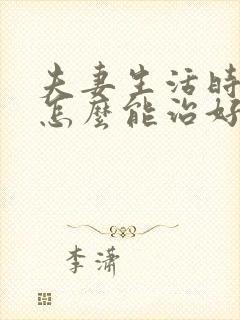 夫妻生活時
怎麼能治好
李潇